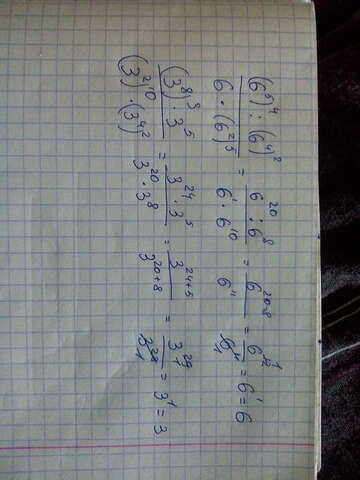 (6⁵)⁴ : (6⁴)² / 6 · (6²)⁵ = 6²⁰ : 6⁸ / 6¹ · 6¹⁰ = 6²⁰⁻⁸ / 6¹¹ = 6¹² / 6¹¹ = 6¹ = 6
(3⁸)³ · 3⁵ / (3²)¹⁰ · (3⁴)² = 3²⁴ · 3⁵ / 3²⁰ · 3⁸ = 3²⁴⁺⁵ / 3²⁰⁺⁸ = 3²⁹ / 3²⁸ = 3¹ = 3